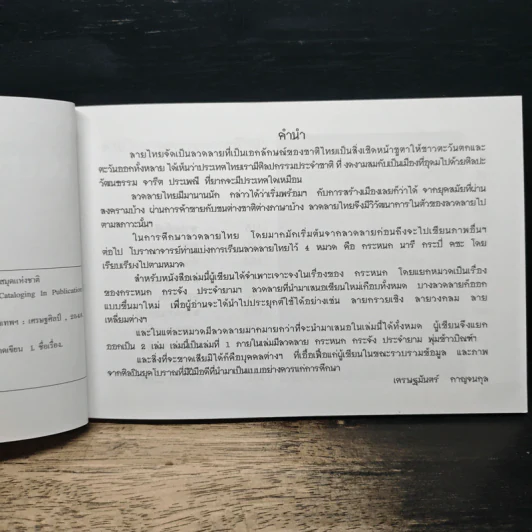 สมุดแห่งชาติ
Cataloging in Publication
เทพฯ : เศรษฐศิลป์, 2546
ดเขียน 1. ชื่อเรื่อง.
คำนำ
ลายไทยจัดเป็นลวดลายที่เป็นเอกลักษณ์ของชาติไทยเป็นสิ่งเชิดหน้าชูตาให้ชาวตะวันตกและ
ตะวันออกทั้งหลาย ได้เห็นว่าประเทศไทยเรามีศิลปกรรมประจำชาติ ที่ งดงามสมกับเป็นเมืองที่อุดมไปด้วยศิลปะ
วัฒนธรรม จารีต ประเพณี ที่ยากจะมีประเทศใดเหมือน
ลวดลายไทยมีมานานนัก กล่าวได้ว่าเริ่มพร้อมๆ กับการสร้างเมืองเลยก็ว่าได้ จากยุคสมัยที่ผ่าน
สงครามบ้าง ผ่านการค้าขายกับชนต่างชาติต่างภาษาบ้าง ลวดลายไทยจึงมีวิวัฒนาการในตัวของลวดลายไป
ตามสภาวะนั้นๆ
ในการศึกษาลวดลายไทย โดยมากมักเริ่มต้นจากลวดลายก่อนถึงจะไปเขียนภาพอื่นๆ
ต่อไป โบราณาจารย์ท่านแบ่งการเรียนลวดลายไทยไว้ 4 หมวด คือ กระหนก นารี กระบี่ คชะ โดย
เรียบเรียงไปตามหมวด
สำหรับหนังสือเล่มนี้ผู้เขียนได้จำเพาะเจาะจงในเรื่องของ กระหนก โดยแยกหมวดเป็นเรื่อง
ของกระหนก กระจัง ประจำยามฯ ลวดลายที่นำมาเสนอเขียนใหม่เกือบทั้งหมด บางลวดลายก็ออก
แบบขึ้นมาใหม่ เพื่อผู้อ่านจะได้นำไปประยุกต์ใช้ได้อย่างเช่น ลายกรวยเชิง ลายวงกลม ลาย
เหลี่ยมต่างๆ
และในแต่ละหมวดมีลวดลายมากมายกว่าที่จะนำมาเสนอในเล่มนี้ได้ทั้งหมด ผู้เขียนจึงแยก
ออกเป็น 2 เล่ม เล่มนี้เป็นเล่มที่ 1 ภายในเล่มมีลวดลาย กระหนก กระจัง ประจำยาม พุ่มข้าวบิณฑ์
และสิ่งที่จะขาดเสียมิได้ก็คือบุคคลต่างๆ ที่เอื้อเฟื้อแก่ผู้เขียนในขณะรวบรวมข้อมูล และภาพ
จากศิลปินยุคโบราณที่มีฝีมือดีที่นำมาเป็นแบบอย่างควรแก่การศึกษา
เศรษฐมันตร์ กาญจนกุล